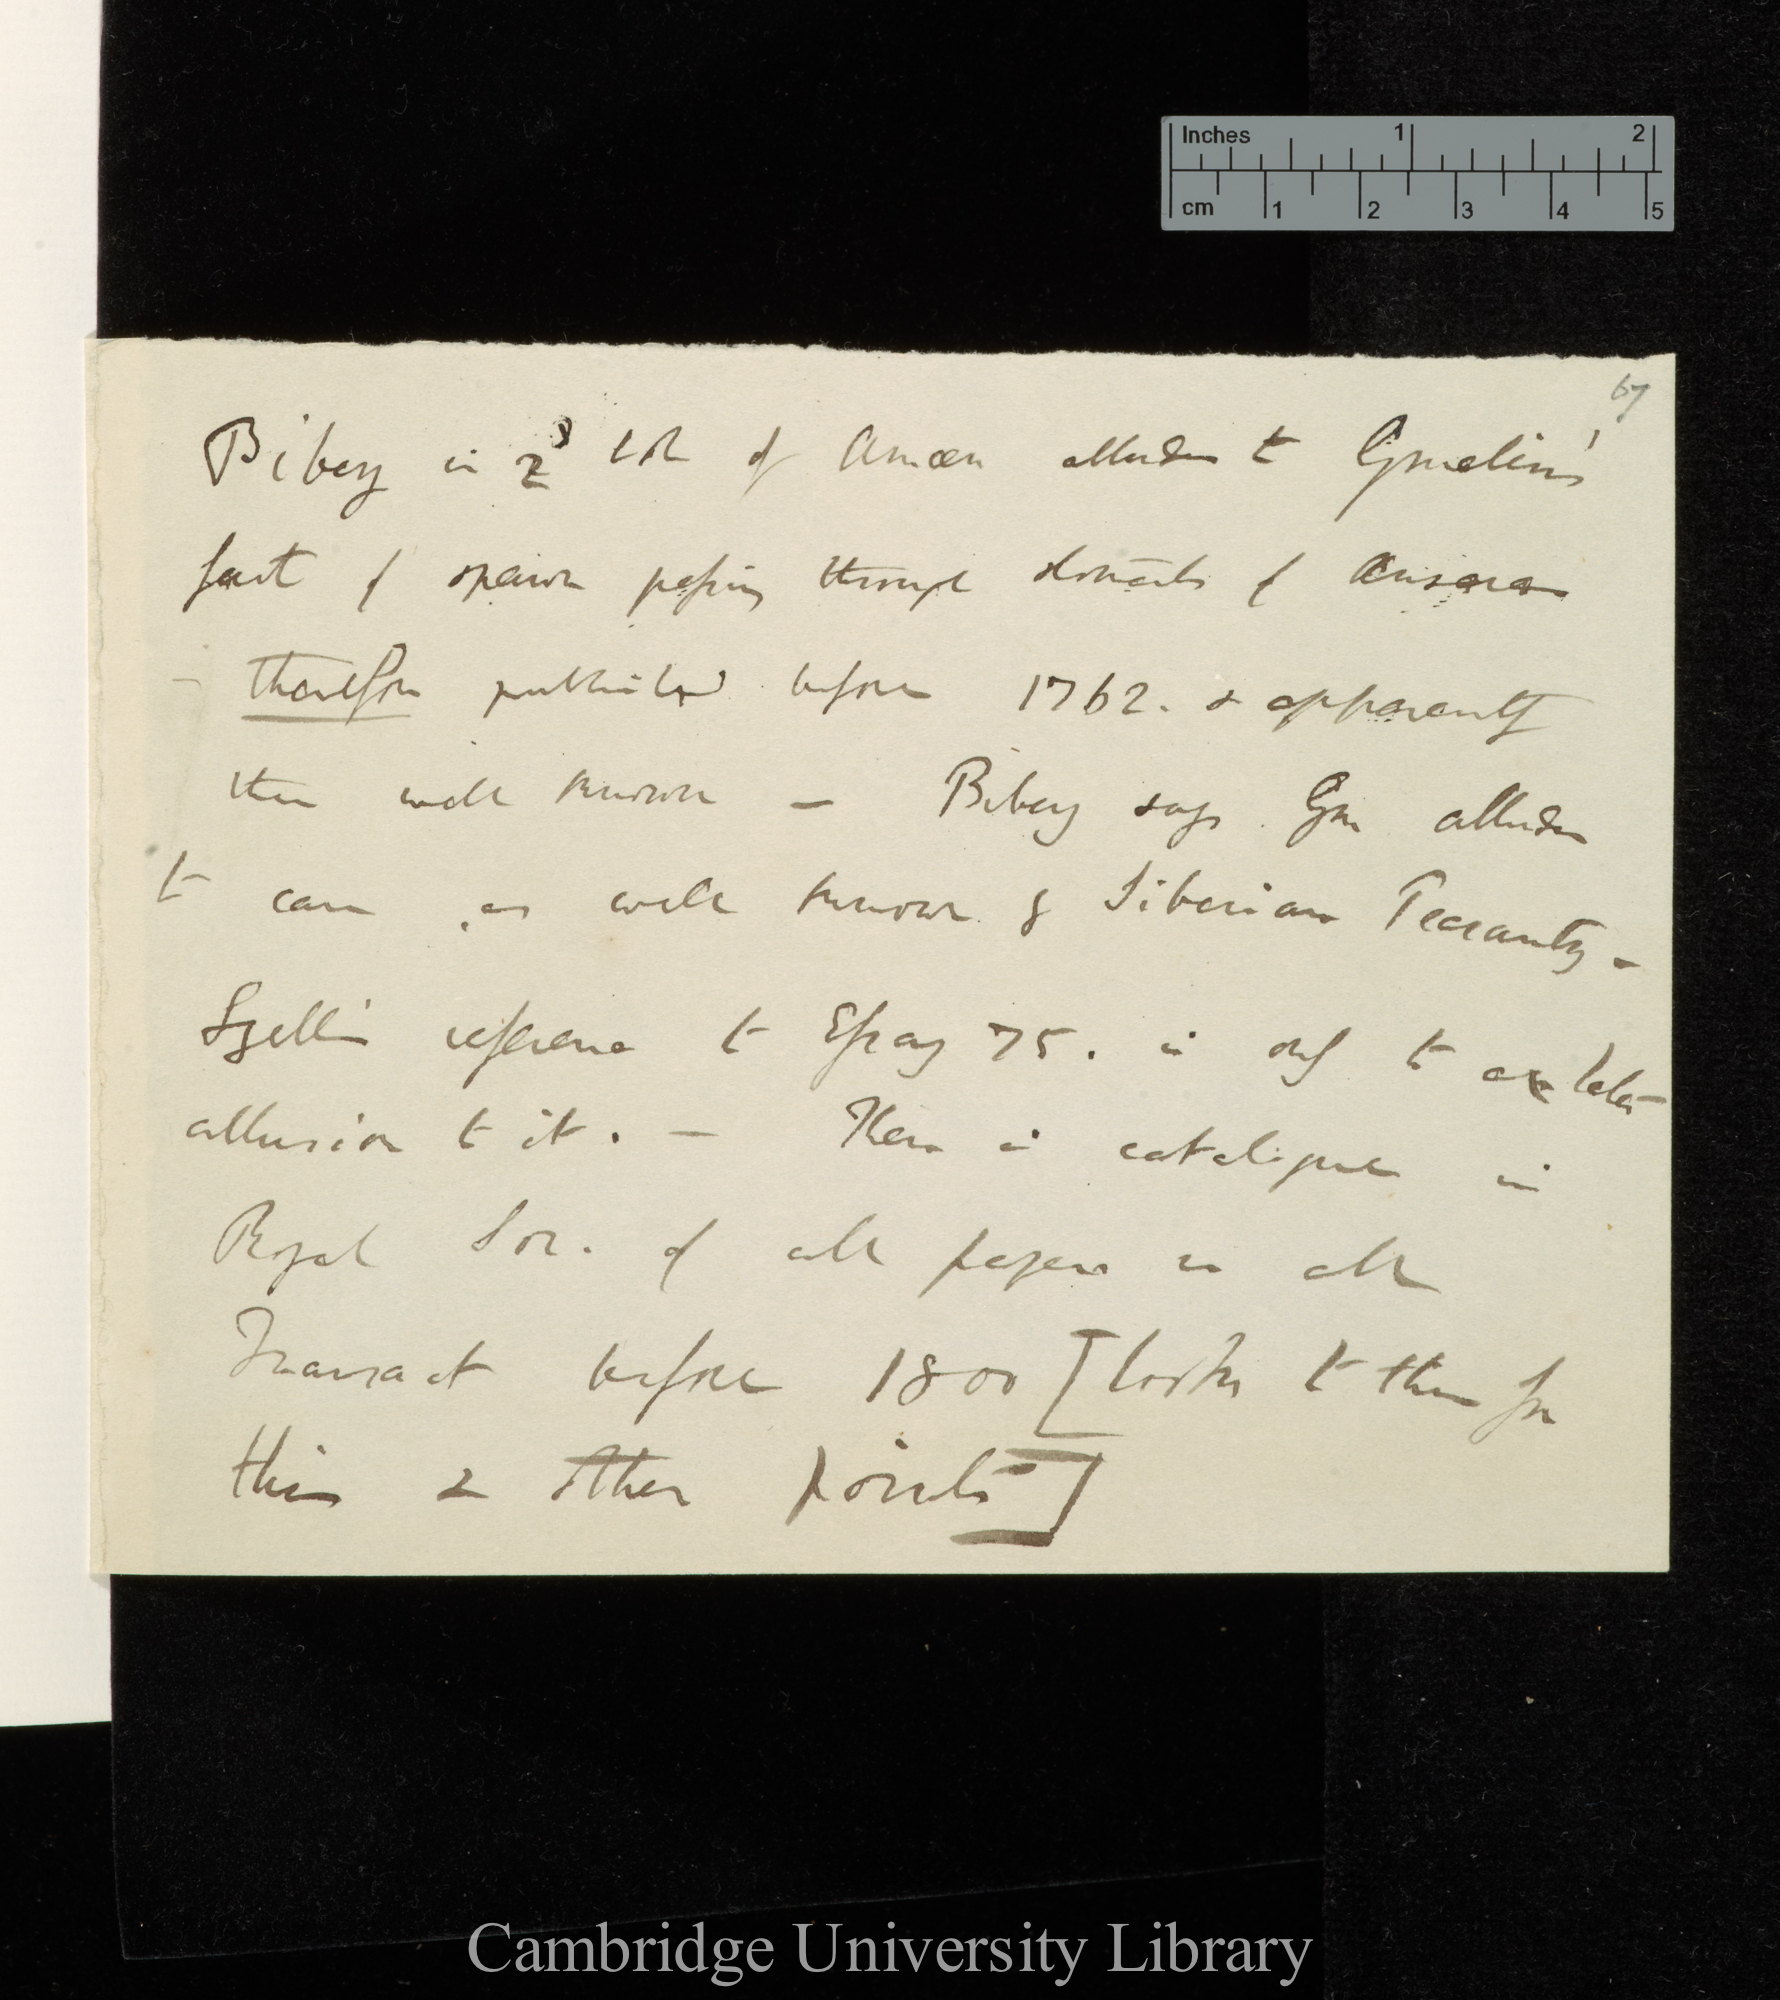 Inches 1 2
cm 1 2 3 4 5
67
Biberg in 2d vol of Amœn alludes to Gmelin's
fact of spawn passing through stomachs of
– therefore published before 1762. & apparently
then well known — Biberg says Gm alludes
to case, as well known & Siberian Peasantry –
reference to Essay 75. is only to a later
allusion to it. — There is catalogue in
Royal Soc. of all papers in all
Transact before 1800 [looks to then for
this & other points]
Cambridge University Library